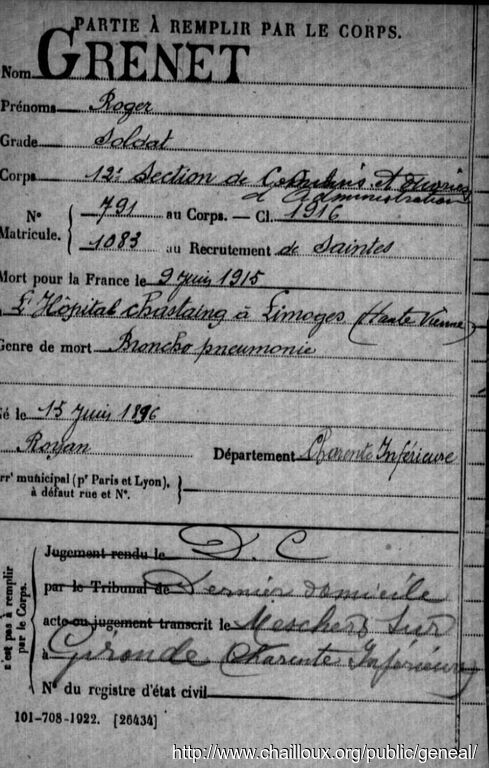 PARTIE À REMPLIR PAR LE CORPS.
Nom GRENET
Prénoms Roger
Grade Soldat
Corps 12e Section de Commis et Ouvriers
d'Administration
N° Matricule. 791 au Corps. — Cl. 1916
1083 au Recrutement de Saintes
Mort pour la France le 9 Juin 1915
à L'Hôpital Chastaing à Limoges (Haute Vienne)
Genre de mort Broncho pneumonie
Né le 15 Juin 1896
Royan Département Charente Inférieure
arrt municipal (pr Paris et Lyon),
à défaut rue et N°.
n'est pas à remplir
par le Corps.
Jugement rendu le D. C
par le Tribunal de Dernier domicile
acte ou jugement transcrit le Meschers sur
à Gironde (Charente Inférieure)
N° du registre d'état civil
101-708-1922. [26434]
http://www.chailloux.org/public/geneal/